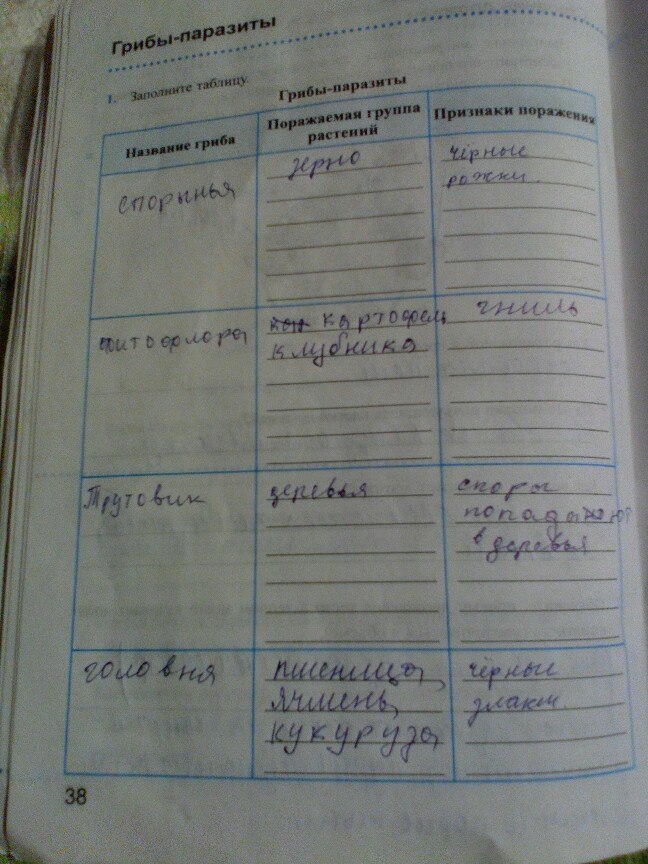 Грибы-паразиты
1. Заполните таблицу.
Грибы-паразиты
Название гриба
Поражаемая группа
растений
Признаки поражения
спорынья
зерно
чёрные
рожки.
фитофлора
картофель
клубника
гниль
Трутовик
деревья
споры
попадают
в деревья
головня
пшеница,
ячмень,
кукуруза,
чёрные
злаки.
38